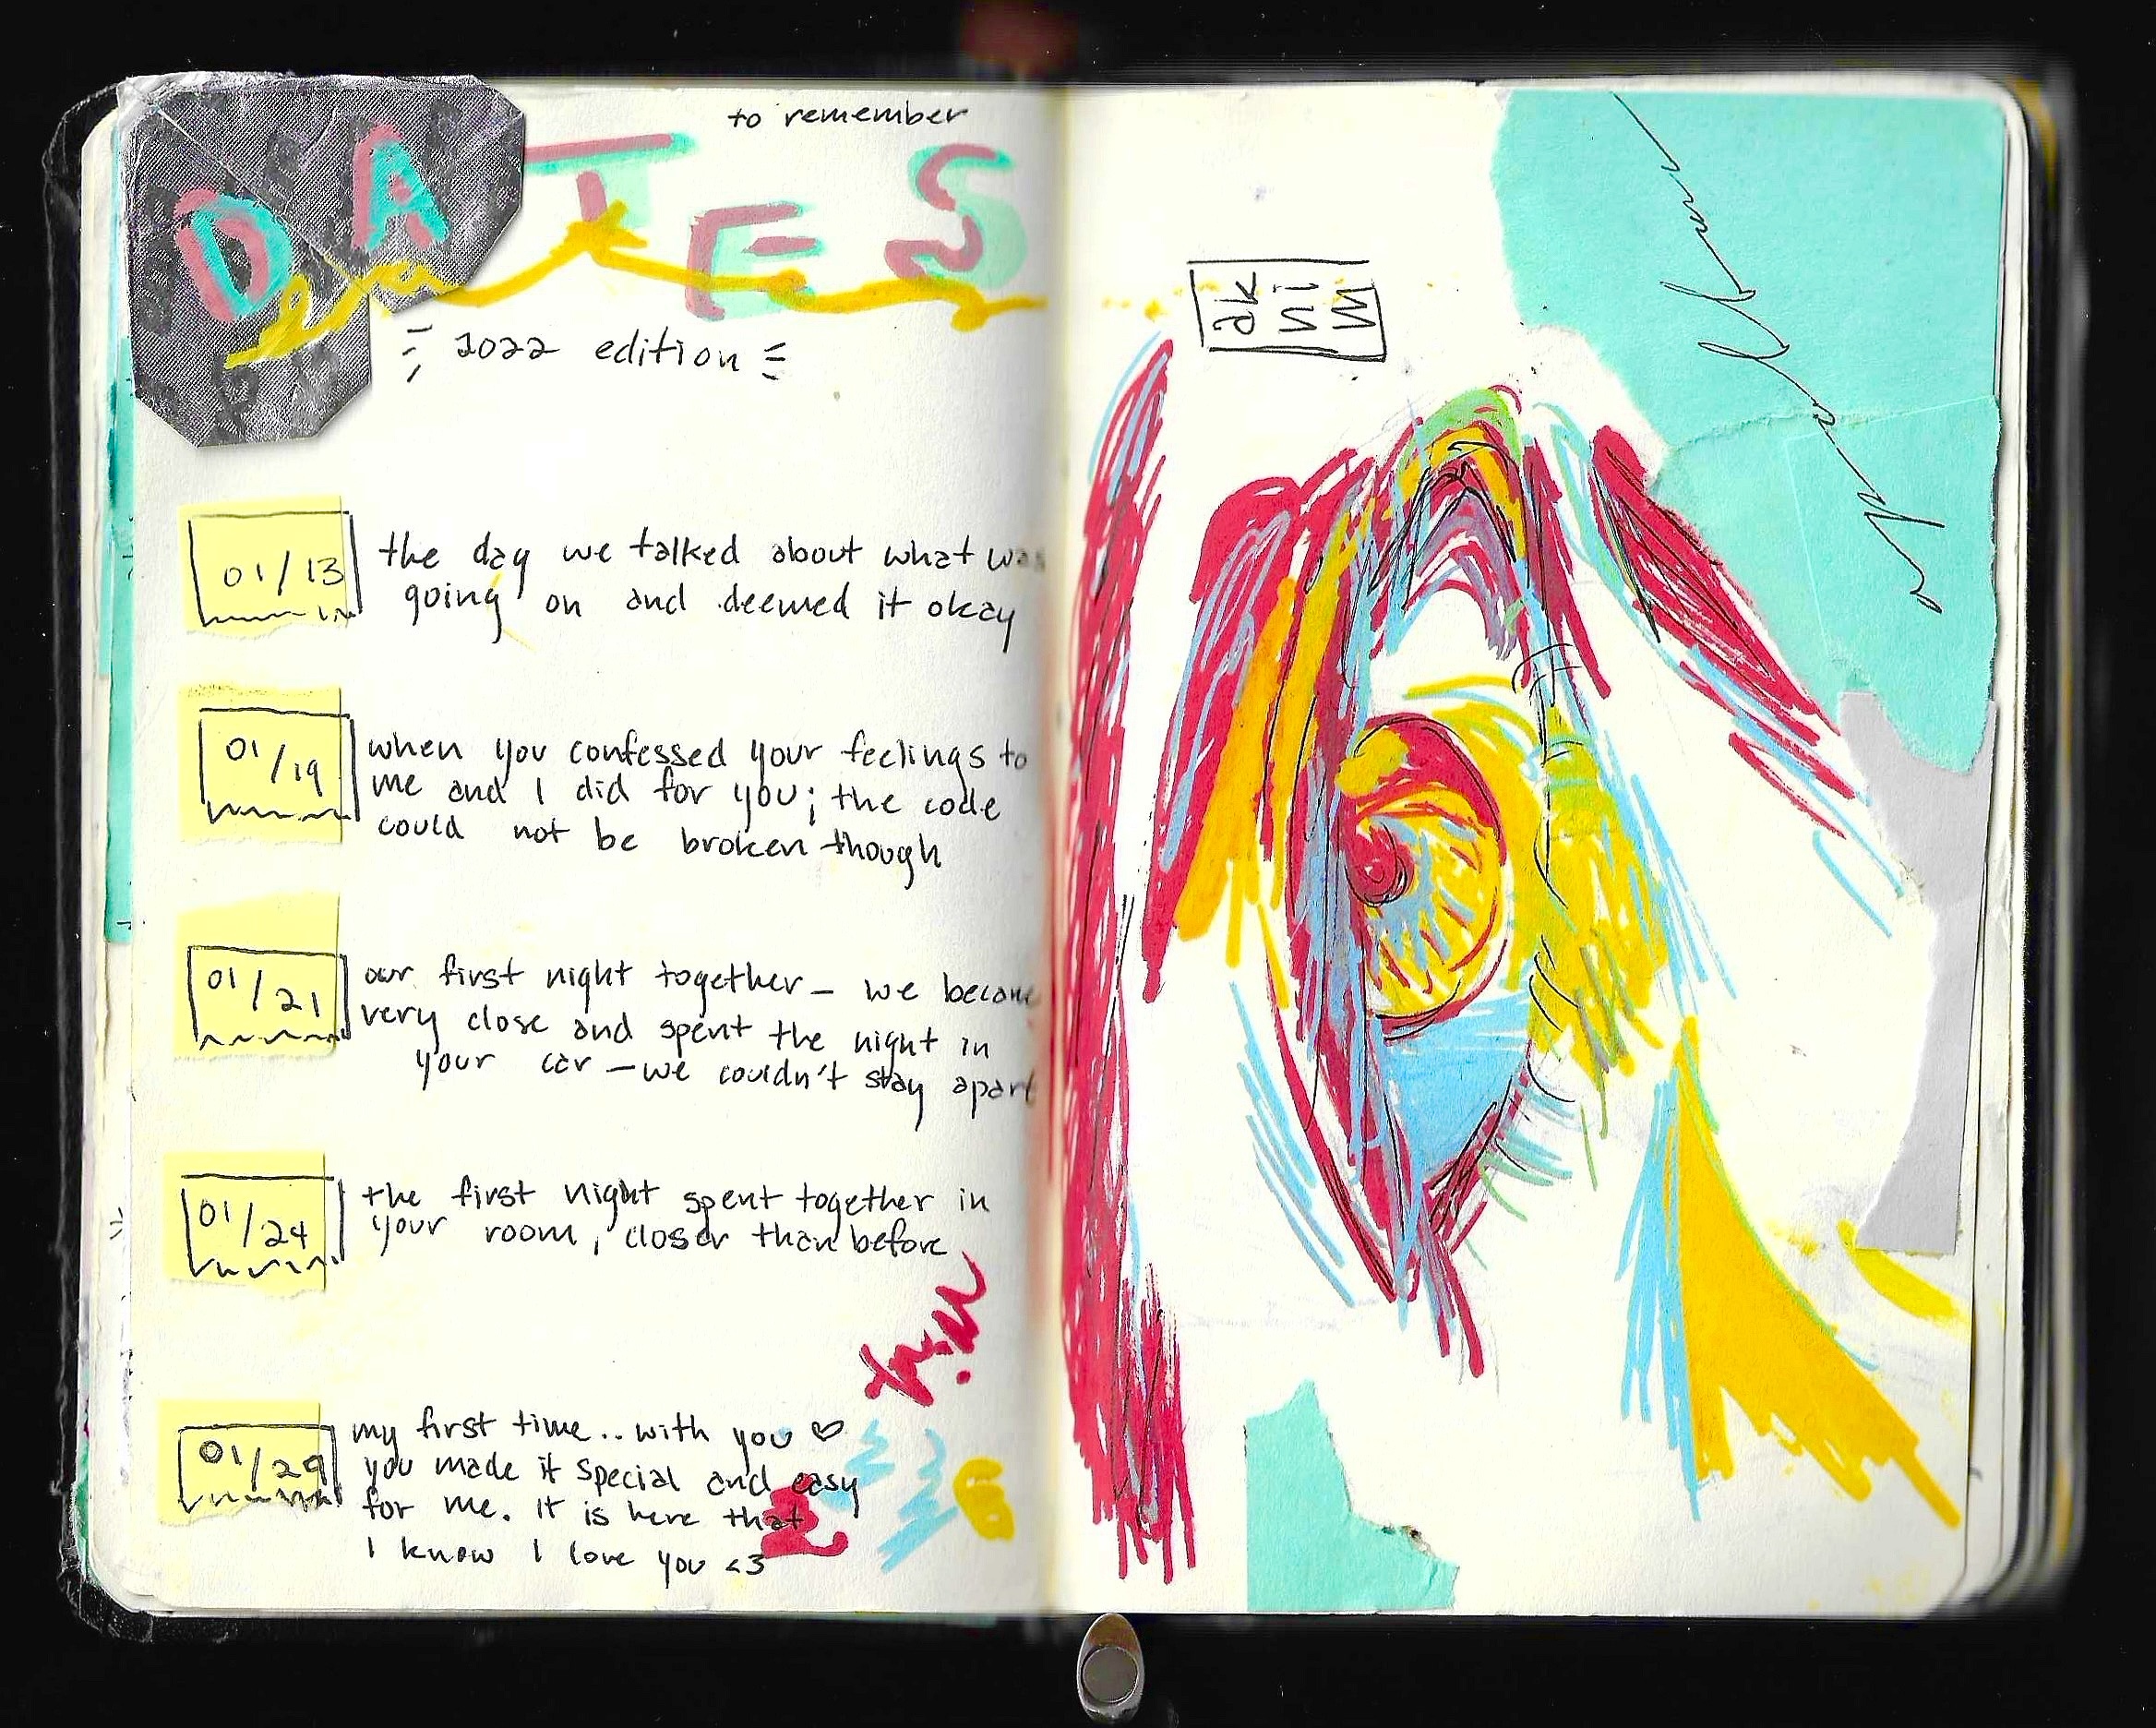 to remember
DATES
2022 edition
01/13
the day we talked about what was
going on and deemed it okay
01/19
when you confessed your feelings to
me and I did for you; the code
could not be broken though
01/21
our first night together - we became
very close and spent the night in
your car - we couldn't stay apart
01/24
the first night spent together in
your room, closer than before
01/29
my first time.. with you ♡
you made it special and easy
for me. it is here that
I know I love you <3